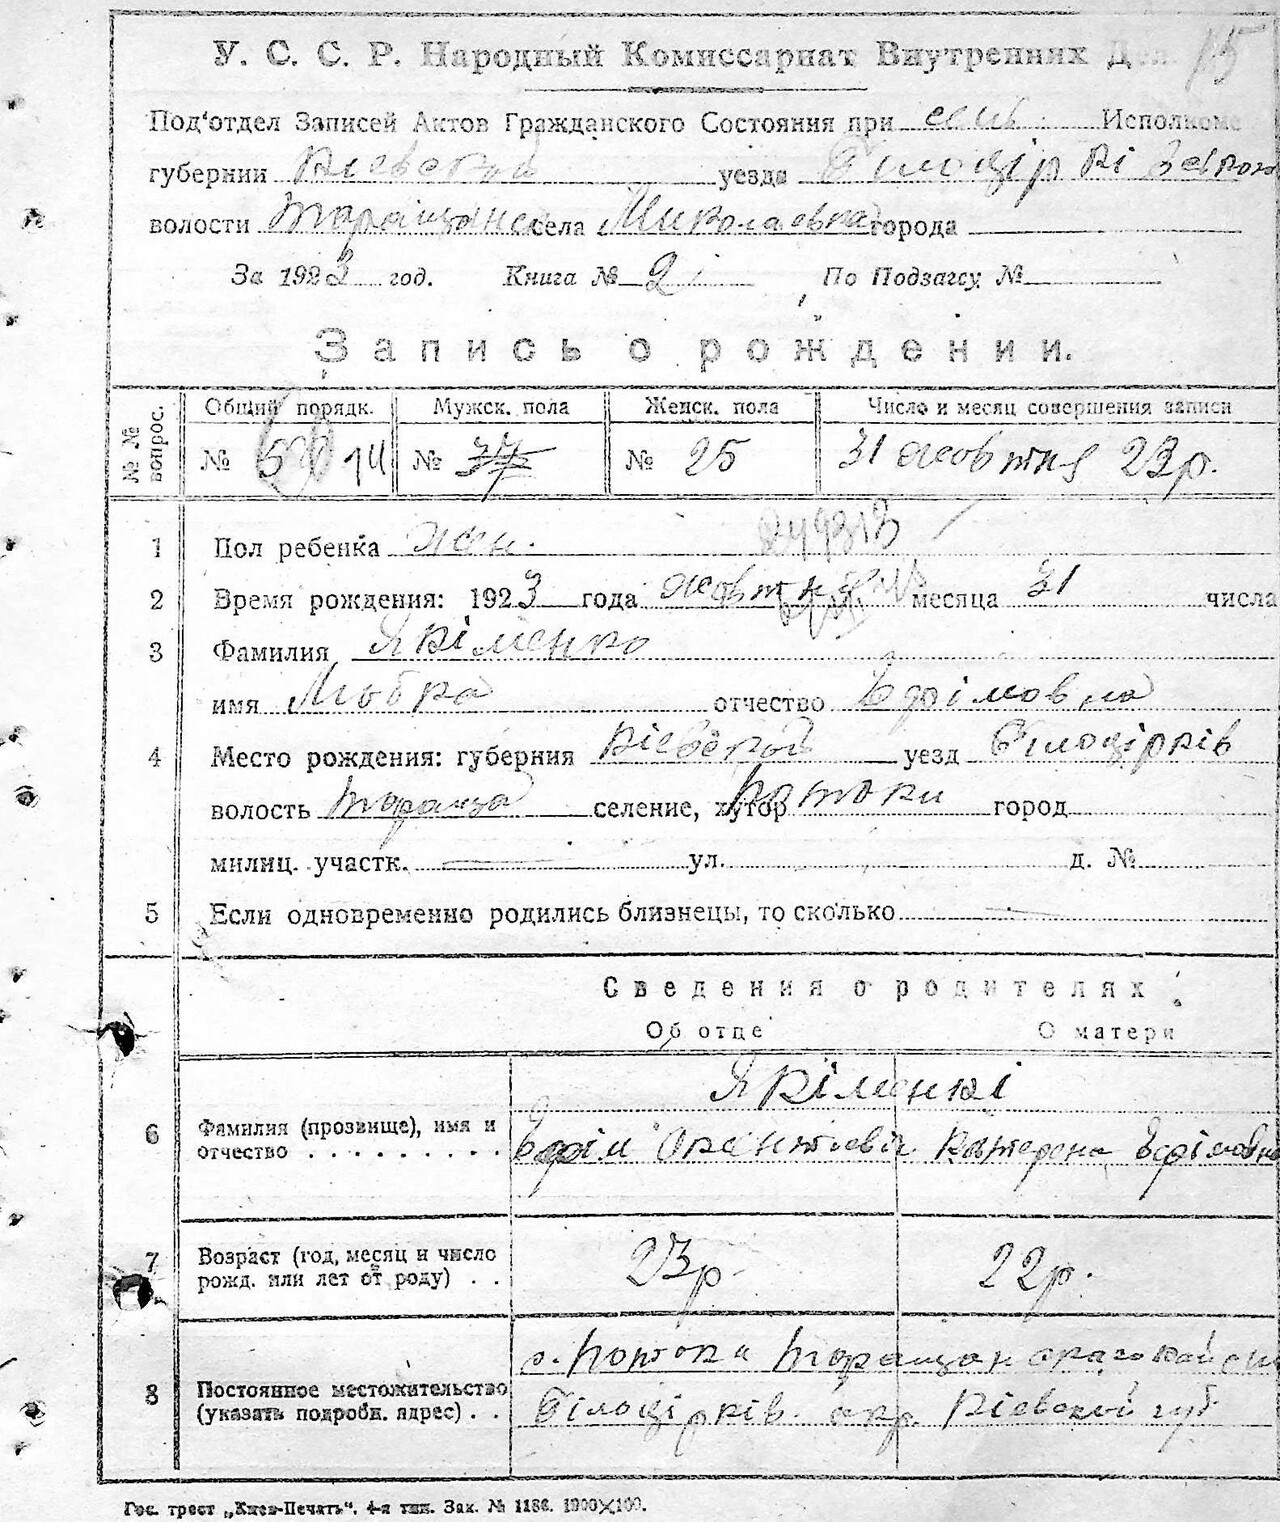 15
У. С. С. Р. Народный Комиссариат Внутренних Дел
Под'отдел Записей Актов Гражданского Состояния при сель. Исполкоме
губернии Кіевской уезда Білоцірківського
волости Таращанс села Миколаевка города
За 1923 год. Книга № 2 По Подзагсу №
Запись о рождении.
№ № вопрос. Общий порядк. Мужск. пола Женск. пола Число и месяц совершения записи
№ 14 № 37 № 25 31 жовтня 23р.
1 Пол ребенка жен.
2 Время рождения: 1923 года жовтня месяца 31 числа
3 Фамилия Якіменко
имя Любка отчество Ефімовна
4 Место рождения: губерния Кіевской уезд Білоцірків
волость Тараща селение, хутор Потоки город
милиц. участк. ул. д. №
5 Если одновременно родились близнецы, то сколько
Сведения о родителях:
Об отце О матери
Якіменкі
6 Фамилия (прозвище), имя и
отчество . . . . . . . . . Ефім Катерена Ефімовна
7 Возраст (год, месяц и число
рожд. или лет от роду) . . 23р. 22р.
с. Потоки
8 Постоянное местожительство
(указать подробн. адрес) . . Білоцірків. окр. Кіевской губ
Гос. трест „Киев-Печать“. 4-я тип. Зак. № 1186. 1000×100.